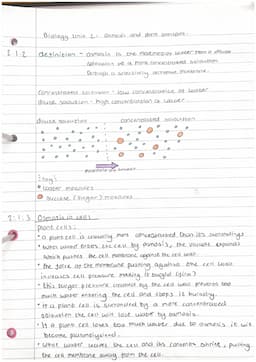 Biology Unit 2: Osmosis and plant transport
2.1.2 definition - osmosis is the movement of water from a dilute
solution to a more concentrated solution
through a selectively permeable membrane.
concentrated solution - low concentration of water
dilute solution - high concentration of water
dilute solution concentrated solution
movement of water
Key:
water molecules
sucrose (sugar) molecules
2.1.3 Osmosis in cells
plant cells:
• a plant cell is usually more concentrated than its surroundings
• when water enters the cell by osmosis, the vacuole expands
which pushes the cell membrane against the cell wall.
• the force of the membrane pushing against the cell wall
increases cell pressure making it turgid (firm)
• this turgor pressure created by the cell wall prevents too
much water entering the cell and stops it bursting.
• if a plant cell is surrounded by a more concentrated
solution the cell will lose water by osmosis.
• if a plant cell loses too much water due to osmosis it will
become plasmolysed.
• when water leaves the cell and its contents shrink, pulling
the cell membrane away from the cell.